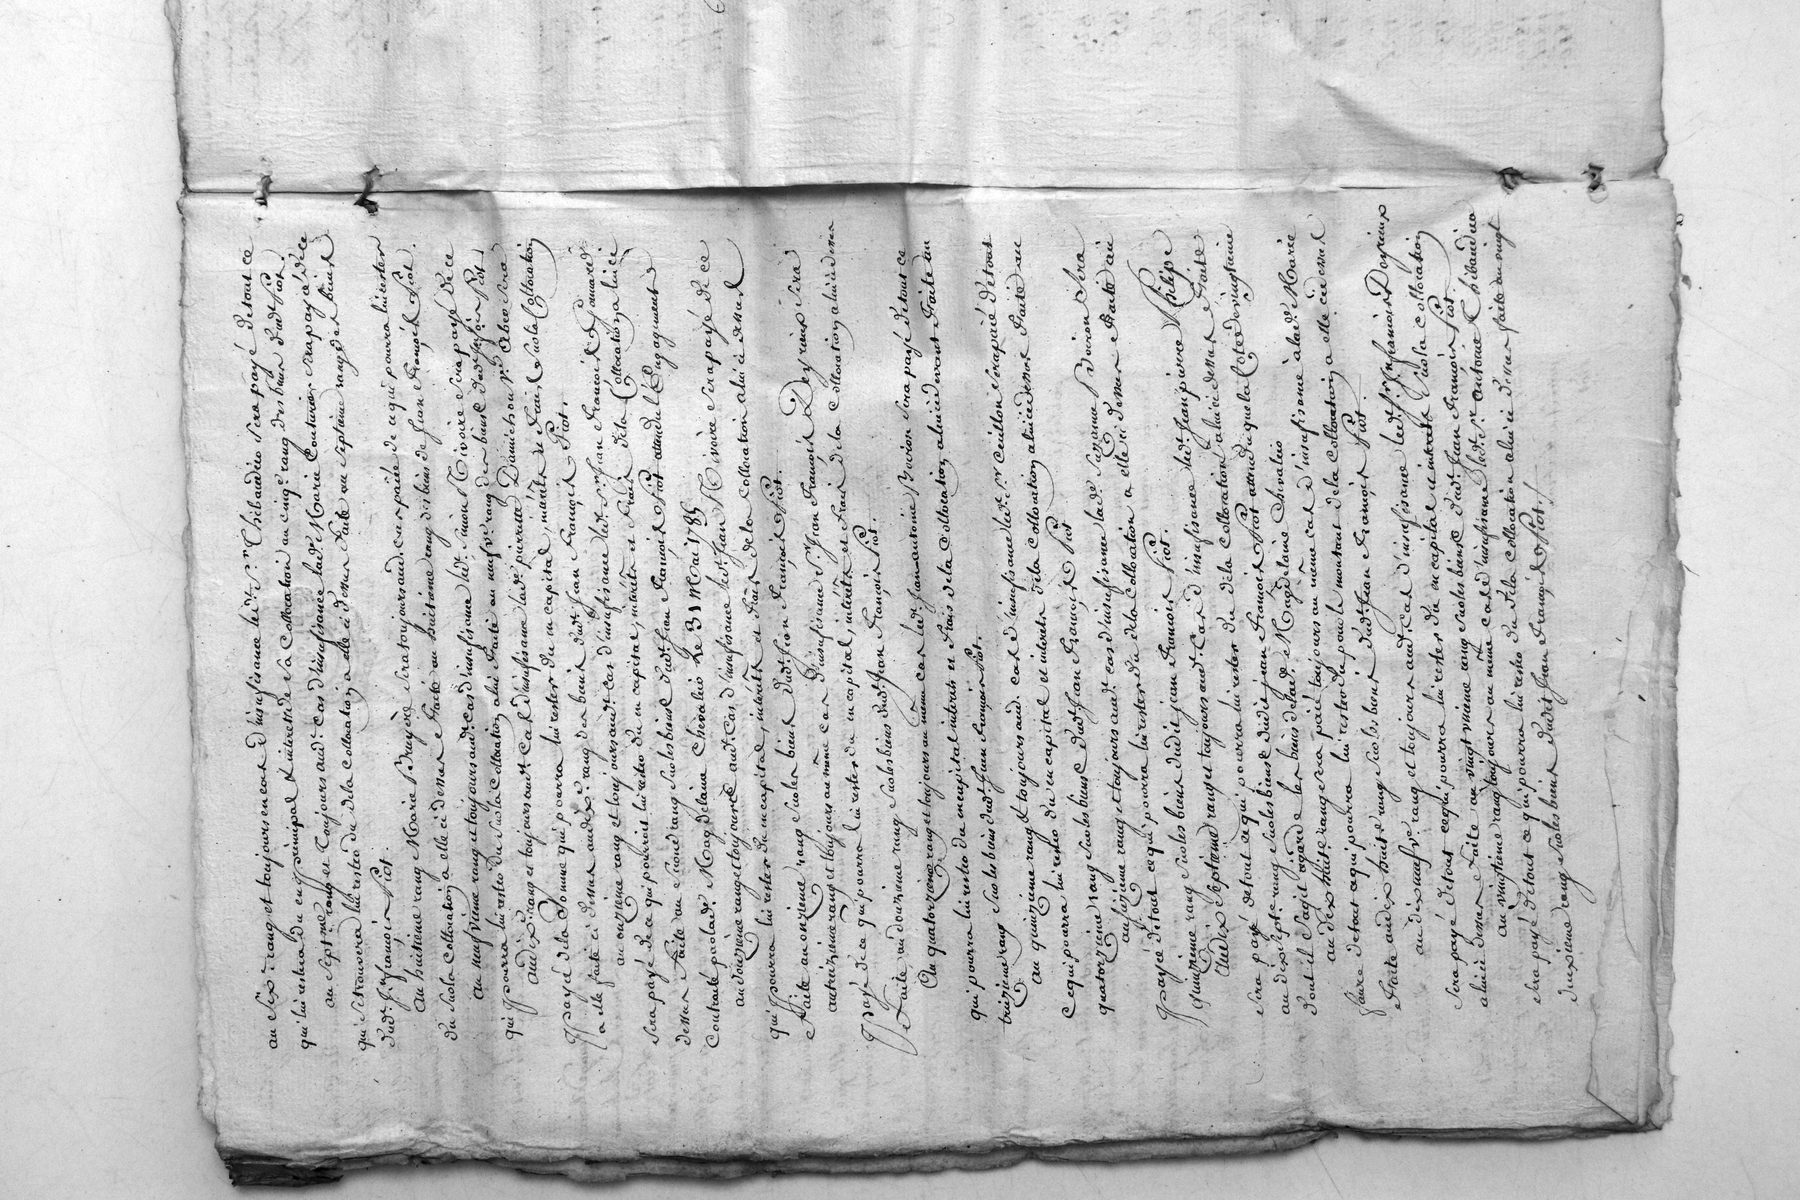 au sixe. rang et toujours en cas d'insufisance led. Sr. Thibaudier sera payé de tout ce
qui lui restera du en principal et interets de sa Collocation au cinqe. rang des biens dud. Piot.
au septme. rang et Toujours aud. cas d'insufisance lad. Marie Couturier sera payé de ce
qui se trouvera lui rester du de la collocation a elle ci dessus faite au septieme rang des biens
dud. Jn. françois Piot.
Au huitieme rang Marie Bruyere sera toujours aud. cas paiée de ce qui pourra lui rester
du sur la collocation a elle ci dessus faite au huitieme rang des biens de Jean François Piot.
au neufvieme rang et toujours aud. cas d'insufisance led. Simon Rivoire sera payé de ce
qui pourra lui rester du sur la Collocation a lui faite au neufve. rang des biens dud. Jean Piot.
au dixe. rang et toujours aud. Cas d'insufisance lad. pierrette Dumichou Ve. abeo sera
payé de la Somme qui pourra lui rester du en capital, interets et frais sur la Collocation
a elle faite ci dessus au dixe. rang des biens dud. Jean François Piot.
au onzieme rang et toujours aud. cas d'insufisance led. Sr. Jean François Gamard
sera payé de ce qui pourroit lui rester du en capital, interets et frais de la Collocation a lui ci
dessus faite au second rang sur les biens dud. Jean François Piot attendu l'Engagement
contracté par lad. Magdelaine Chevalier le 31 Mai 1785
au douzieme rang et toujours aud. cas d'insufisance led. Jean Rivoire sera payé de ce
qui pourra lui rester du en capital, interets et frais de la collocation a lui ci dessus
faite au onzieme rang sur les biens dud. Jean François Piot.
au treizieme rang et toujours au meme cas d'insufisance Sr. Jean François Deyrieux sera
payé de ce qui pourra lui rester du en capital, interets et frais de la collocation a lui ci dessus
faite au douzieme rang sur les biens dud. Jean François Piot.
Au quatorzieme rang et toujours au meme cas led. Jean antoine Bovion sera payé de tout ce
qui pourra lui rester du en capital interets et frais de la collocation a lui ci devant faite au
treizieme rang sur les biens dud. Jean François Piot.
au quinzieme rang et toujours aud. cas d'insufisance led. Sr. Ceillon sera paié de tout
ce qui pourra lui rester du en capital et interets de la collocation a lui ci dessus faite au
quatorzieme rang sur les biens dud. Jean François Piot
au seizieme rang et toujours aud. cas d'insufisance lad. Suzanne Poiron sera
payée de tout ce qui pourra lui rester du de la Collocation a elle ci dessus faite au
quinzieme rang sur les biens dudit jean François Piot.
Au dix septieme rang et toujours aud. Cas d'insufisance led. Jean pierre Philipe
sera payé de tout ce qui pourra lui rester du de la collocation a lui ci dessus faite
au dix septe. rang sur les biens dudit jean François Piot attendu que la Cote de vingtieme
dont il s'agit regarde les biens de lad. Magdelaine Chevalier
au dix huite. rang sera paié toujours au meme cas d'insufisance a lad. Marie
faure de tout ce qui pourra lui rester du pour le montant de la collocation a elle ci dessus
faite au dix huite. rang sur les biens dud. Jean François Piot.
au dix neufve. rang et toujours aud. Cas d'insufisance led. Sr. Jn. françois Deyrieux
sera payé de tout ce qui pourra lui rester du en capital et interets sur la collocation
a lui ci dessus faite au vingtieme rang sur les biens dud. Jean François Piot.
au vingtieme rang toujours au meme cas d'insufisance led. Sr. antoine Thibaudier
sera payé de tout ce qui pourra lui rester du de la collocation a lui ci dessus faite au vingt
deuxieme rang sur les biens dudit Jean François Piot.